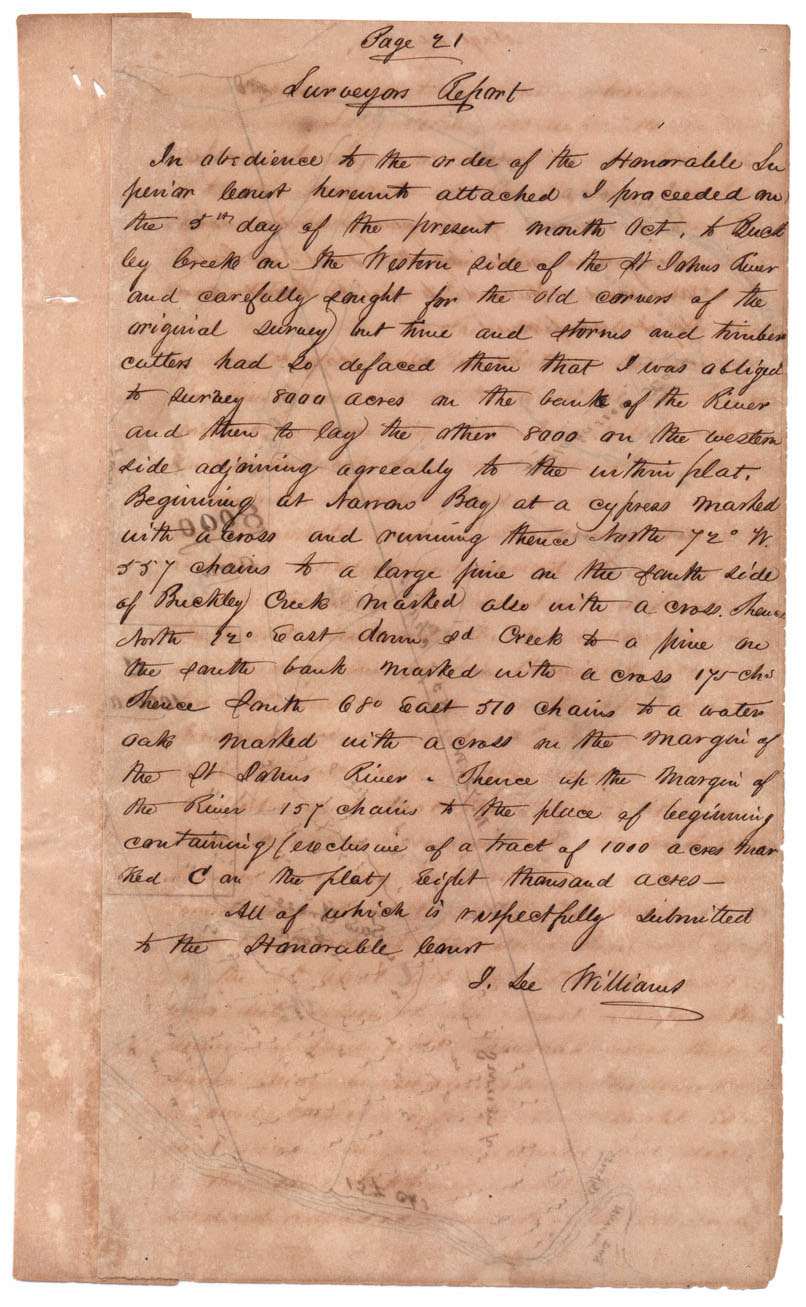 Page 21
Surveyors Report
In obedience to the order of the Honorable Su
perior Court hereunto attached I proceeded on
the 5th day of the present month Oct, to Buck
ley Creek on the Western side of the St Johns River
and carefully sought for the old corners of the
original survey, but time and storms and timber
cutters had so defaced them that I was obliged
to survey 8000 acres on the bank of the River
and then to lay the other 8000 on the western
side adjoining agreeably to the within plat.
Beginning at Narrow Bay at a cypress marked
with a cross and running thence North 72° W.
557 chains to a large pine on the South side
of Buckley Creek marked also with a cross. Thence
North 12° East down sd Creek to a pine on
the South bank marked with a cross 175 chs
Thence South 68° East 510 chains to a water
oak marked with a cross on the margin of
the St Johns River. Thence up the margin of
the River 157 chains to the place of beginning
containing (exclusive of a tract of 1000 acres mar
ked C on the plat) Eight thousand acres—
All of which is respectfully submitted
to the Honorable Court
J. Lee Williams